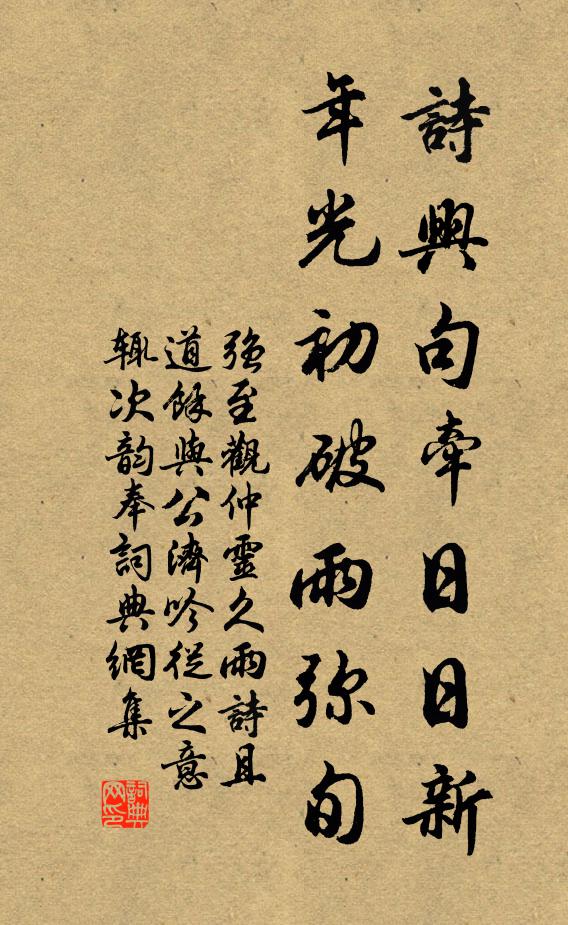 詩興句牽日日新
年光初破雨弥旬
强至觀仲靈久雨詩且
道餘與公濟吟從之意
辄次韵奉詞典網集
詞典
网印